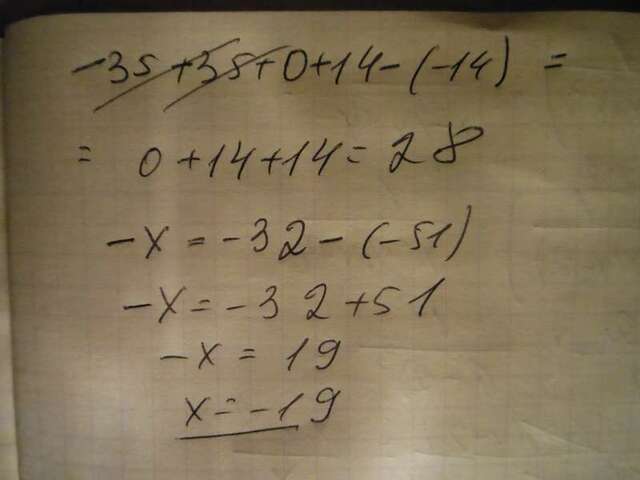 -35+35+0+14-(-14) =
= 0+14+14=28
-x = -32-(-51)
-x=-32+51
-x = 19
x=-19